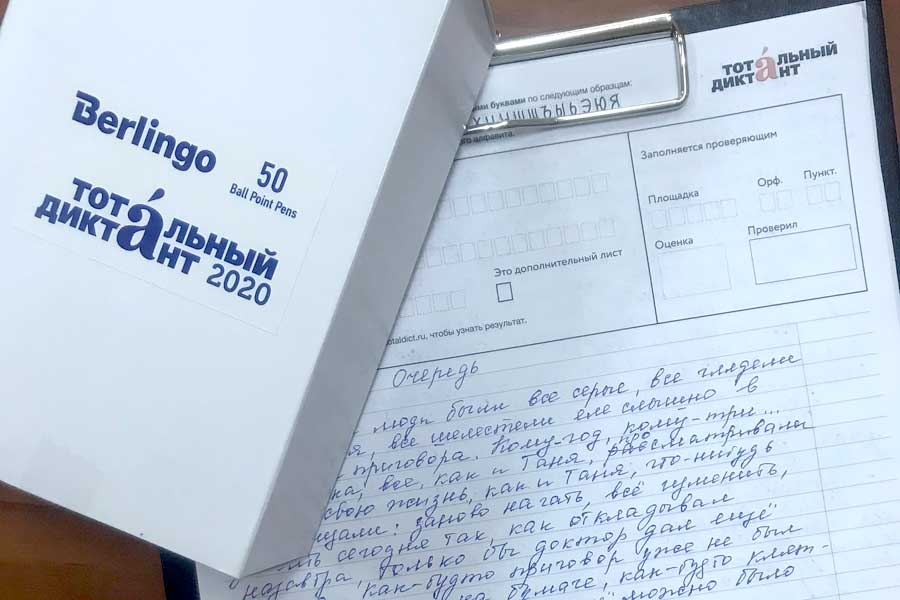 Berlingo
50
Ball Point Pens
тотáльный
диктант 2020
тотáльный
диктант
ми буквами по следующим образцам:
Заполняется проверяющим
Площадка
Орф.
Пункт.
Оценка
Проверил
Это дополнительный лист
otaldict.ru, чтобы узнать результат.
Очередь
люди были все серые, все глядели
я, все шелестели еле слышно в
приговора. Кому-год, кому-три...
на, все, как и Таня,
свою жизнь, как и Таня, что-нибудь
щали: заново начать, всё изменить,
сегодня так, как откладывал
назавтра, только бы доктор дал ещё
как-будто приговор уже не был
на бумаге, как-будто клят-
можно было